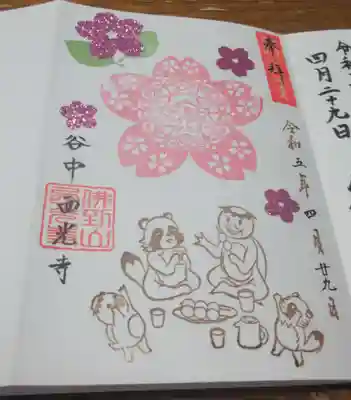 令和
四月二十九日
奉拝
令和五年四月廿九日
谷中西光寺